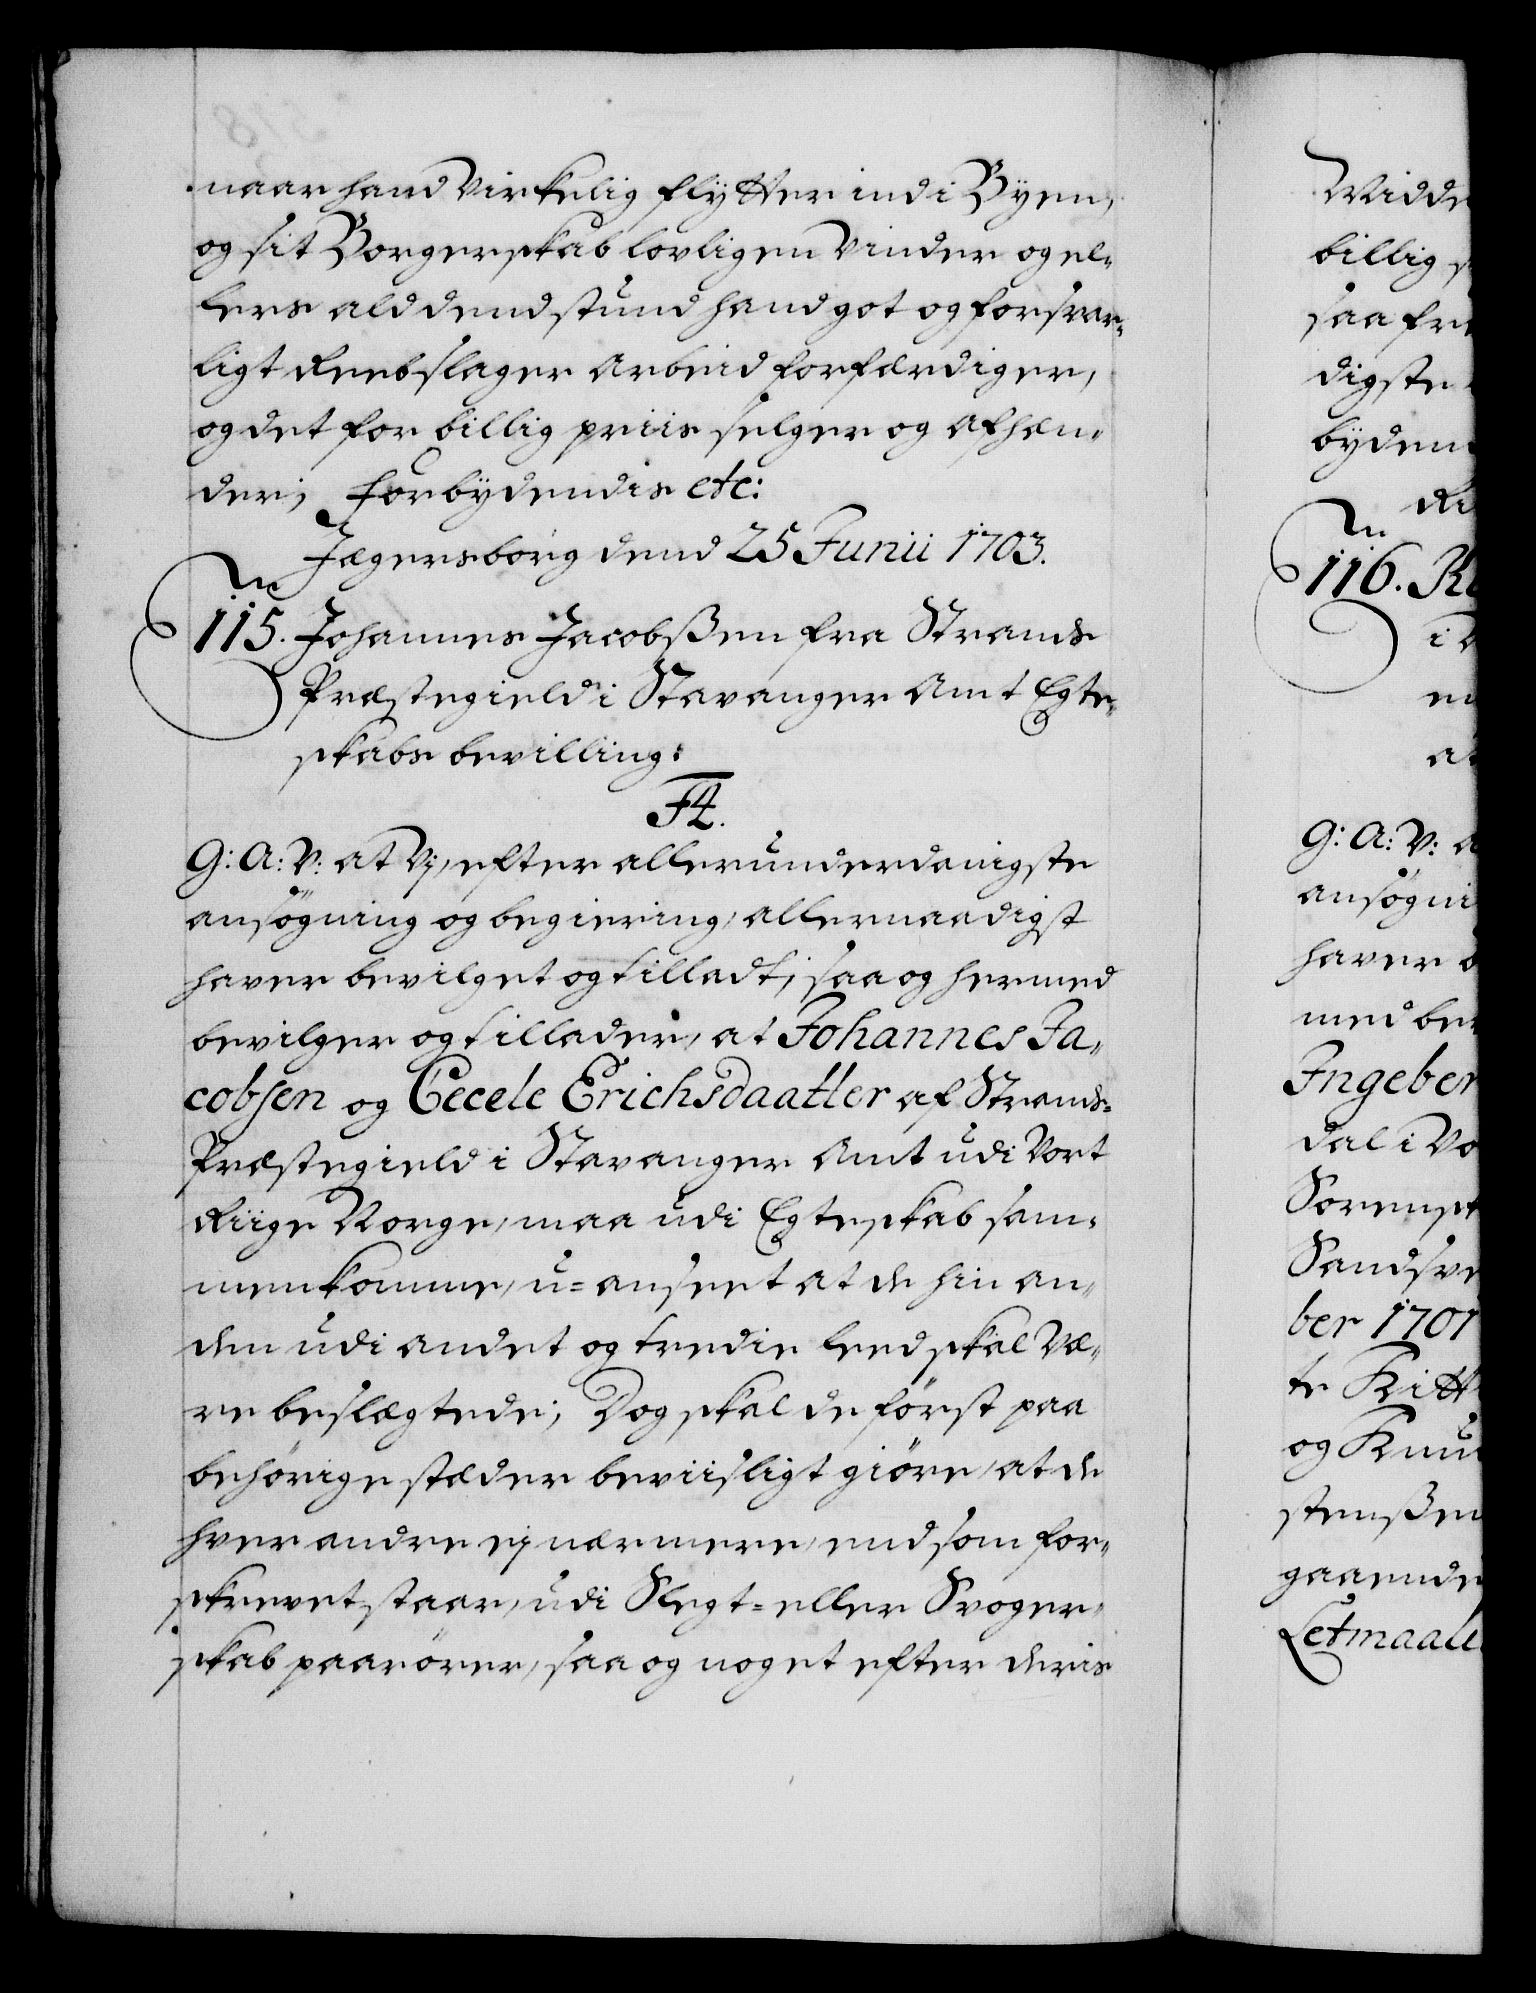 naar hand Virkelig flytter ind i Byen,
og sit Borgerskab lovligen Vinder og el-
lers ald dend stund hand got og forsvar-
ligt Reebslager Arbeid forfærdiger,
og det for billig priis selger og afhæn-
der; Forbydendis etc:
Jægersborg dend 25 Junii 1703.
115. Johannes Jacobßen fra Strands
Præstegield i Stavanger Amt Egte-
skabs bevilling:
F4.
G: A: V: at Vj, efter allerunderdanigste
ansøgning og begiering, allernaadigst
haver bevilget og tilladt, saa og hermed
bevilger og tillader, at Johannes Ja-
cobsen og Cecele Erichsdaatter af Strands-
Præstegield i Stavanger Amt udi Vort
Riige Norge, maa udi Egteskab sam-
menkomme, u-anseet at de hin an-
den udi andet og tredie leed skal Væ-
re beslægtede; Dog skal de først paa
behørige stæder beviisligt giøre, at de
hver andre ej nærmere, end som for-
skrevet staar, udi Slegt- eller Svoger-
skab paarører, saa og noget efter deris
Widde
billig
saa fre
digste
byden
116.
i
en
at
G: A: V: a
ansøgni
haver
med be
Ingeber
dal i Vo
Sorensk
Sandsve
ber 1701
te Kitt
og Knu
stenßen
gaaende
Letmaale